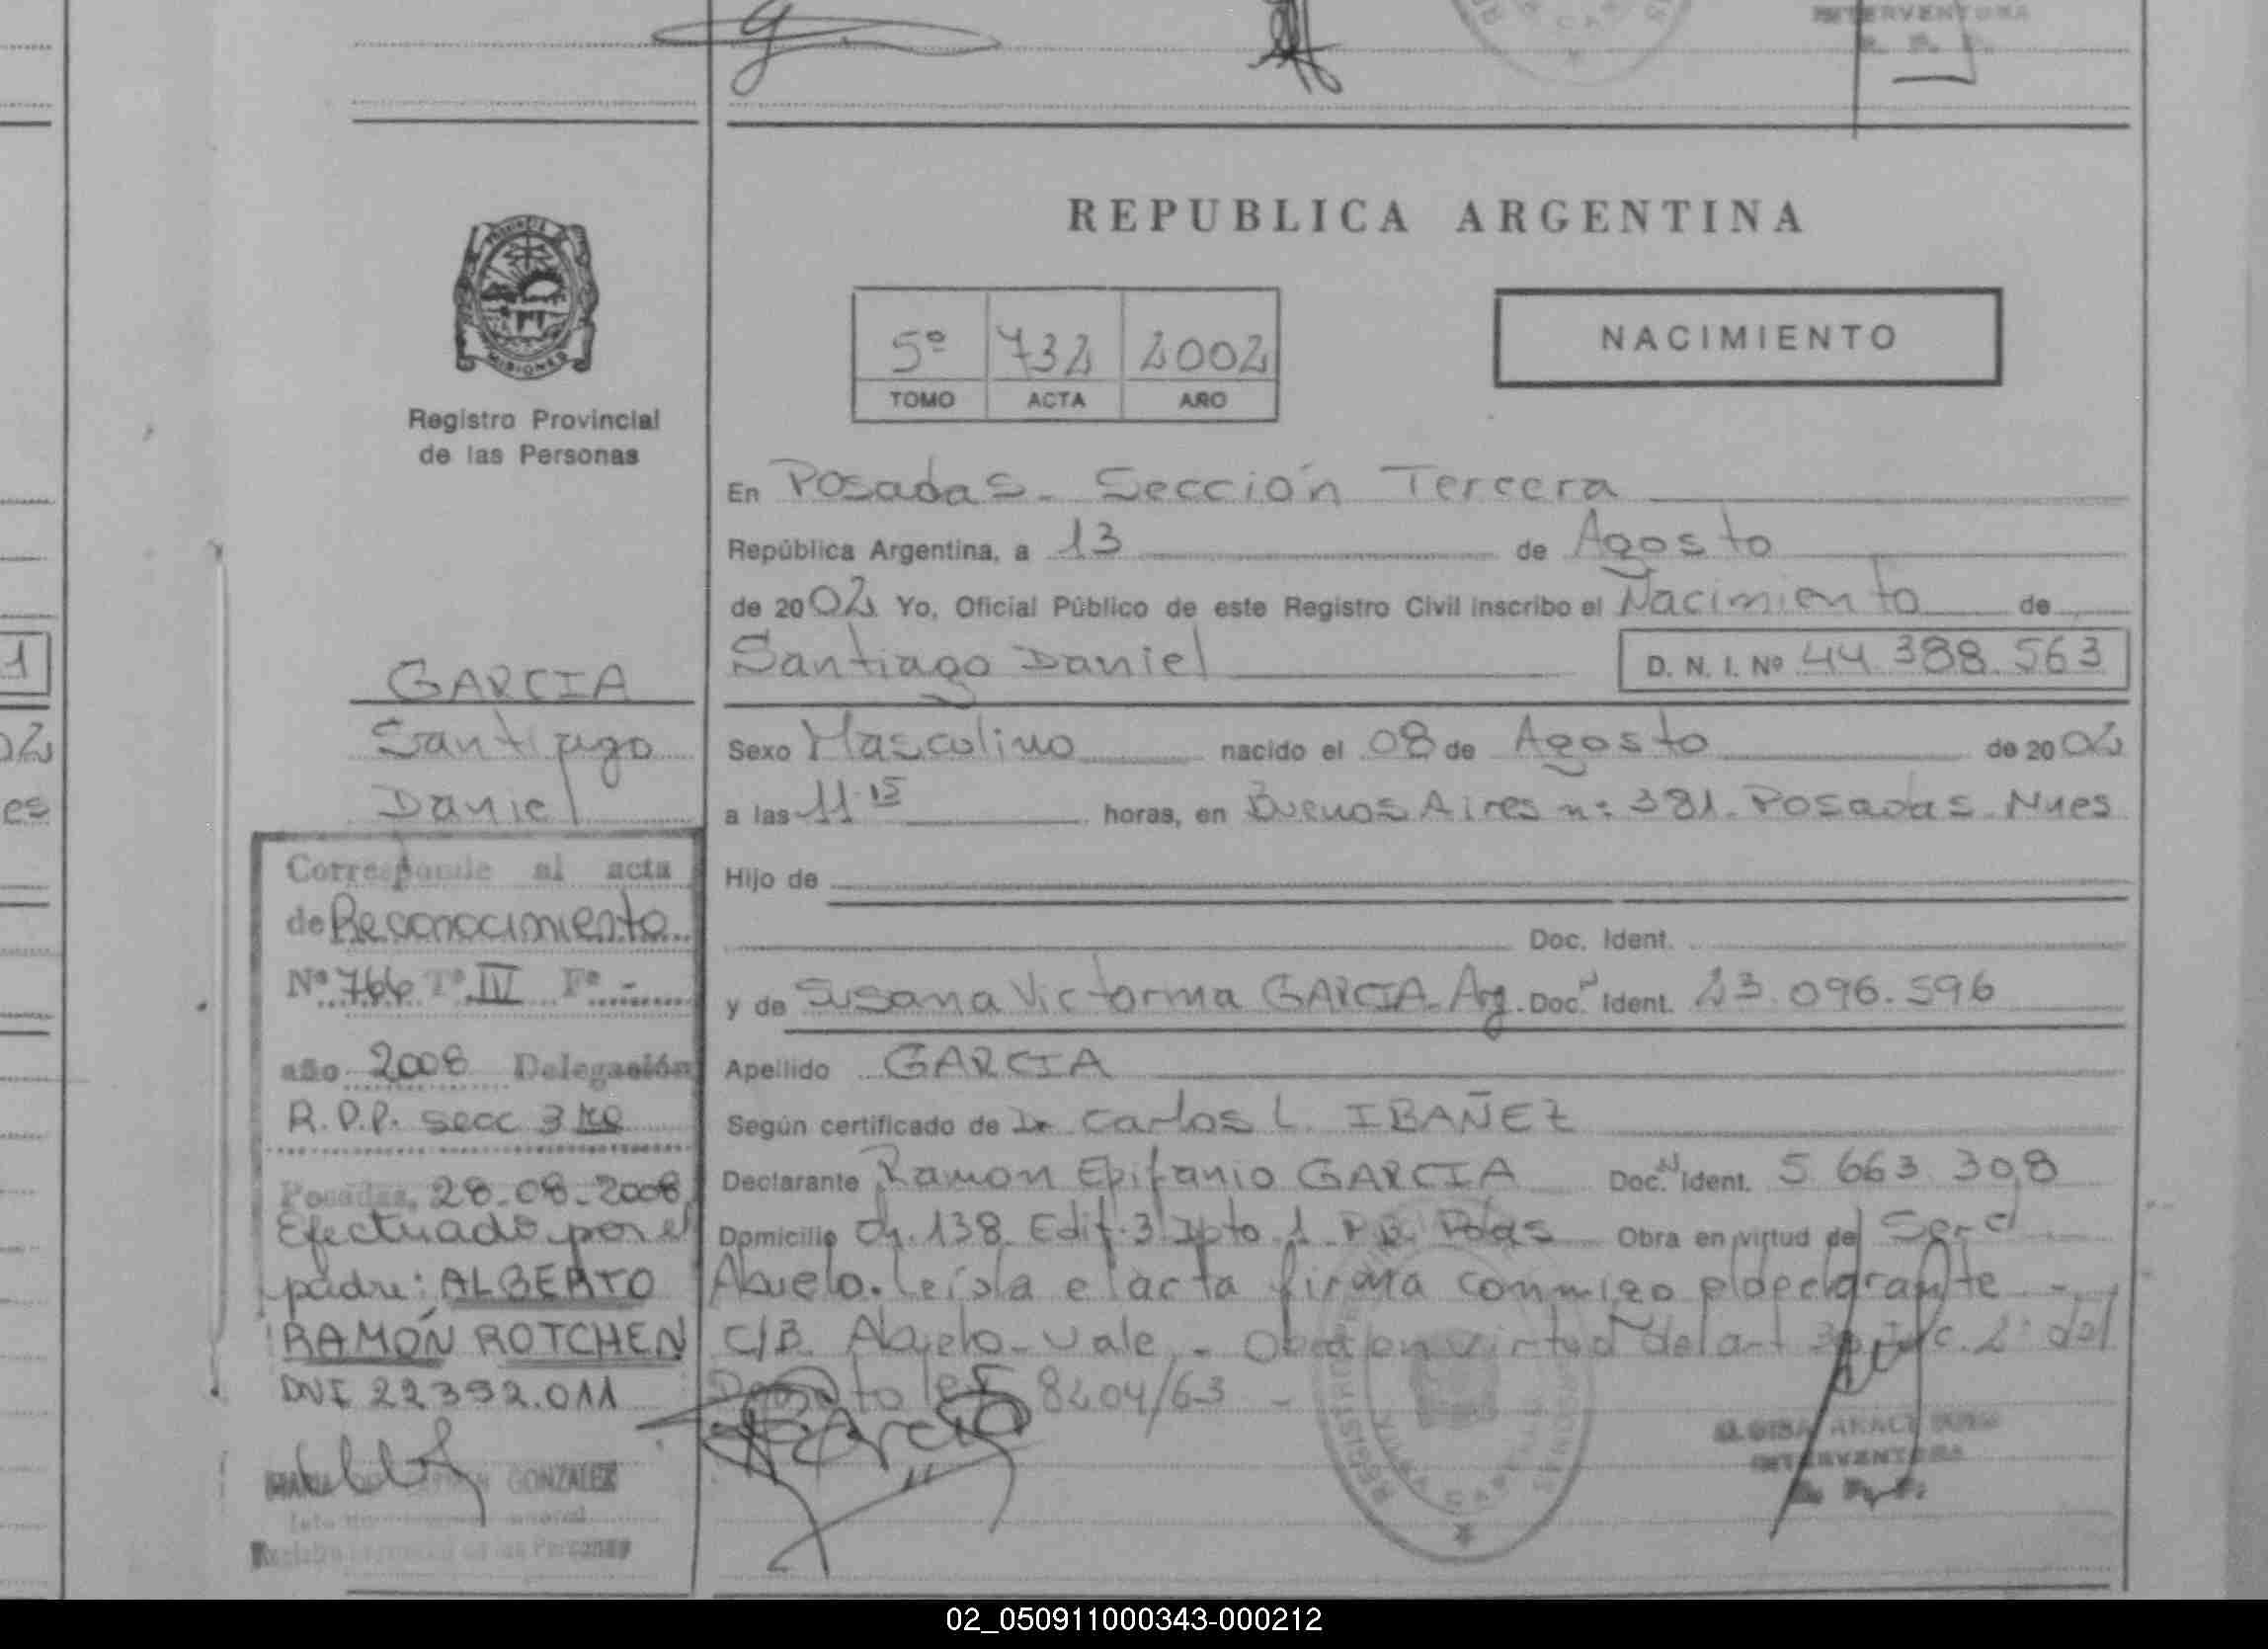 INTERVENTORA
REPUBLICA ARGENTINA
PROVINCIA DE
MISIONES
5º 732 2002
TOMO ACTA AÑO
NACIMIENTO
Registro Provincial
de las Personas
En Posadas - Sección Tercera
República Argentina, a 13 de Agosto
de 2002 Yo, Oficial Público de este Registro Civil inscribo el Nacimiento de
Santiago Daniel D. N. I. Nº 44.388.563
GARCIA
Santiago
Daniel
Sexo Masculino nacido el 08 de Agosto de 2002
a las 11.15 horas, en Buenos Aires nº 381. Posadas. Mnes
Hijo de
Doc. Ident.
y de Susana Victorina GARCIA. Arg. Doc. N Ident. 23.096.596
Apellido GARCIA
Según certificado de Dr Carlos L. IBAÑEZ
Declarante Ramon Epifanio GARCIA Doc. N Ident. 5.663.308
Domicilio Ch. 138 Edif. 3 Dpto 1 P.B. Pdas Obra en virtud de Ser el
Abuelo. Leída el acta firma conmigo el declarante -
C/B. Abuelo - vale - Obra en virtud del art 30 Inc. 2º del
Decreto ley 8204/63 -
Corresponde al acta
de Reconocimiento
Nº 766 Tº IV Fº -
año 2008 Delegación
R.P.P. secc 3 ra
Posadas, 28.08.2008
Efectuado por el
padre: ALBERTO
RAMÓN ROTCHEN
DNI 22392.011
GONZALEZ
de las Personas
Garcia
INTERVENTORA
R. P. P.
1
02
es
02_050911000343-000212